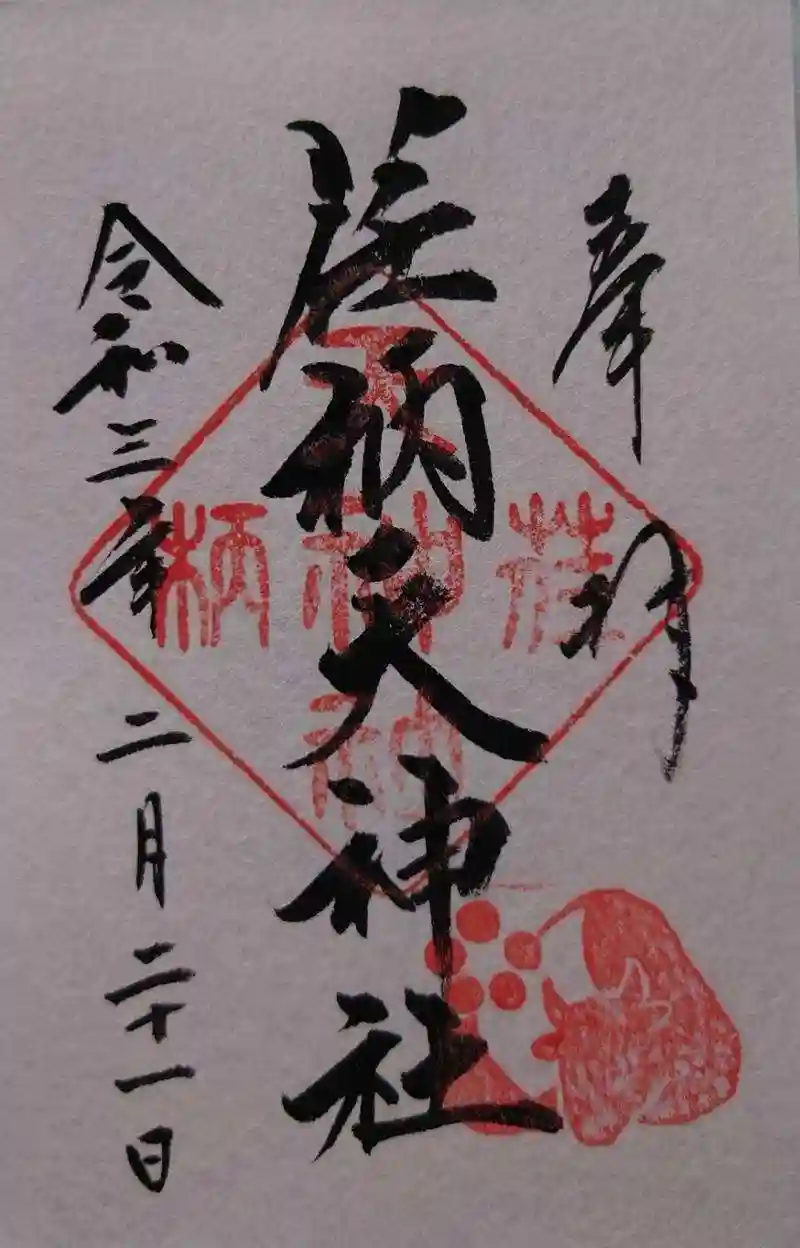 奉拝
荏柄天神社
令和三年二月二十一日
天
荏神柄
神